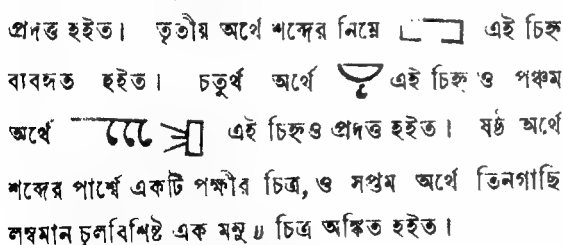 প্রদত্ত হইত। তৃতীয় অর্থে শব্দের নিম্নে এই চিহ্ন
ব্যবহৃত হইত। চতুর্থ অর্থে এই চিহ্ন ও পঞ্চম
অর্থে এই চিহ্নও প্রদত্ত হইত। ষষ্ঠ অর্থে
শব্দের পার্শ্বে একটি পক্ষীর চিত্র, ও সপ্তম অর্থে তিনগাছি
লম্বমান চুলবিশিষ্ট এক মনুষ্য চিত্র অঙ্কিত হইত।